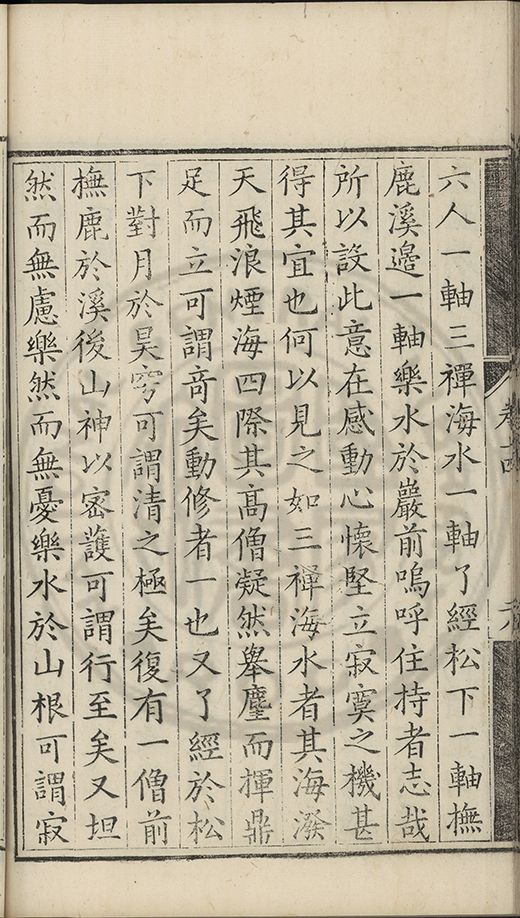 六人一軸三禪海水一軸了經松下一軸撫
鹿溪邉一軸樂水於巖前嗚呼住持者志哉
所以設此意在感動心懷堅立寂寞之機甚
得其宜也何以見之如三禪海水者其海潑
天飛浪煙海四際其高僧凝然舉麈而揮鼎
足而立可謂竒矣動修者一也又了經於松
下對月於昊穹可謂清之極矣復有一僧前
撫鹿於溪後山神以密護可謂行至矣又坦
然而無慮樂然而無憂樂水於山根可謂寂